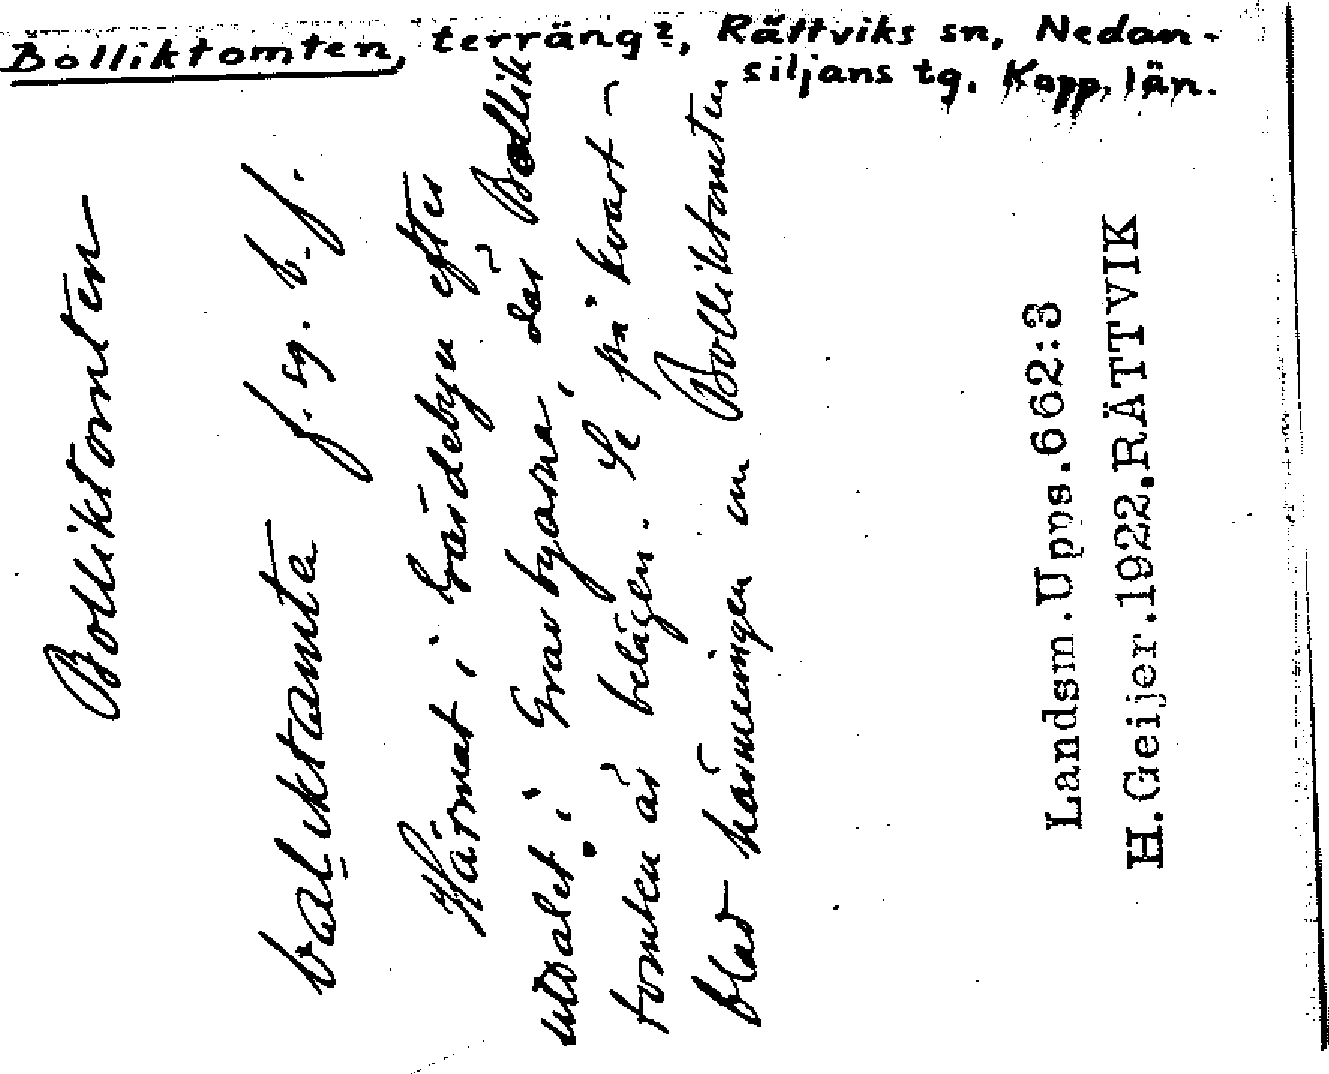 Bolliktomten, terräng?, Rättviks sn, Nedan-
siljans tg. Kopp. län.
Bolliktomten
f. sg. b. f.
Härmat i Gärdebyn efter
uttalet i Gravbyarna, där Bollik
tomten är belägen. Se på kvart-
blad hänvisningen en Bolliktomten
Landsm.Upps.662:3
H.Geijer.1922.RÄTTVIK